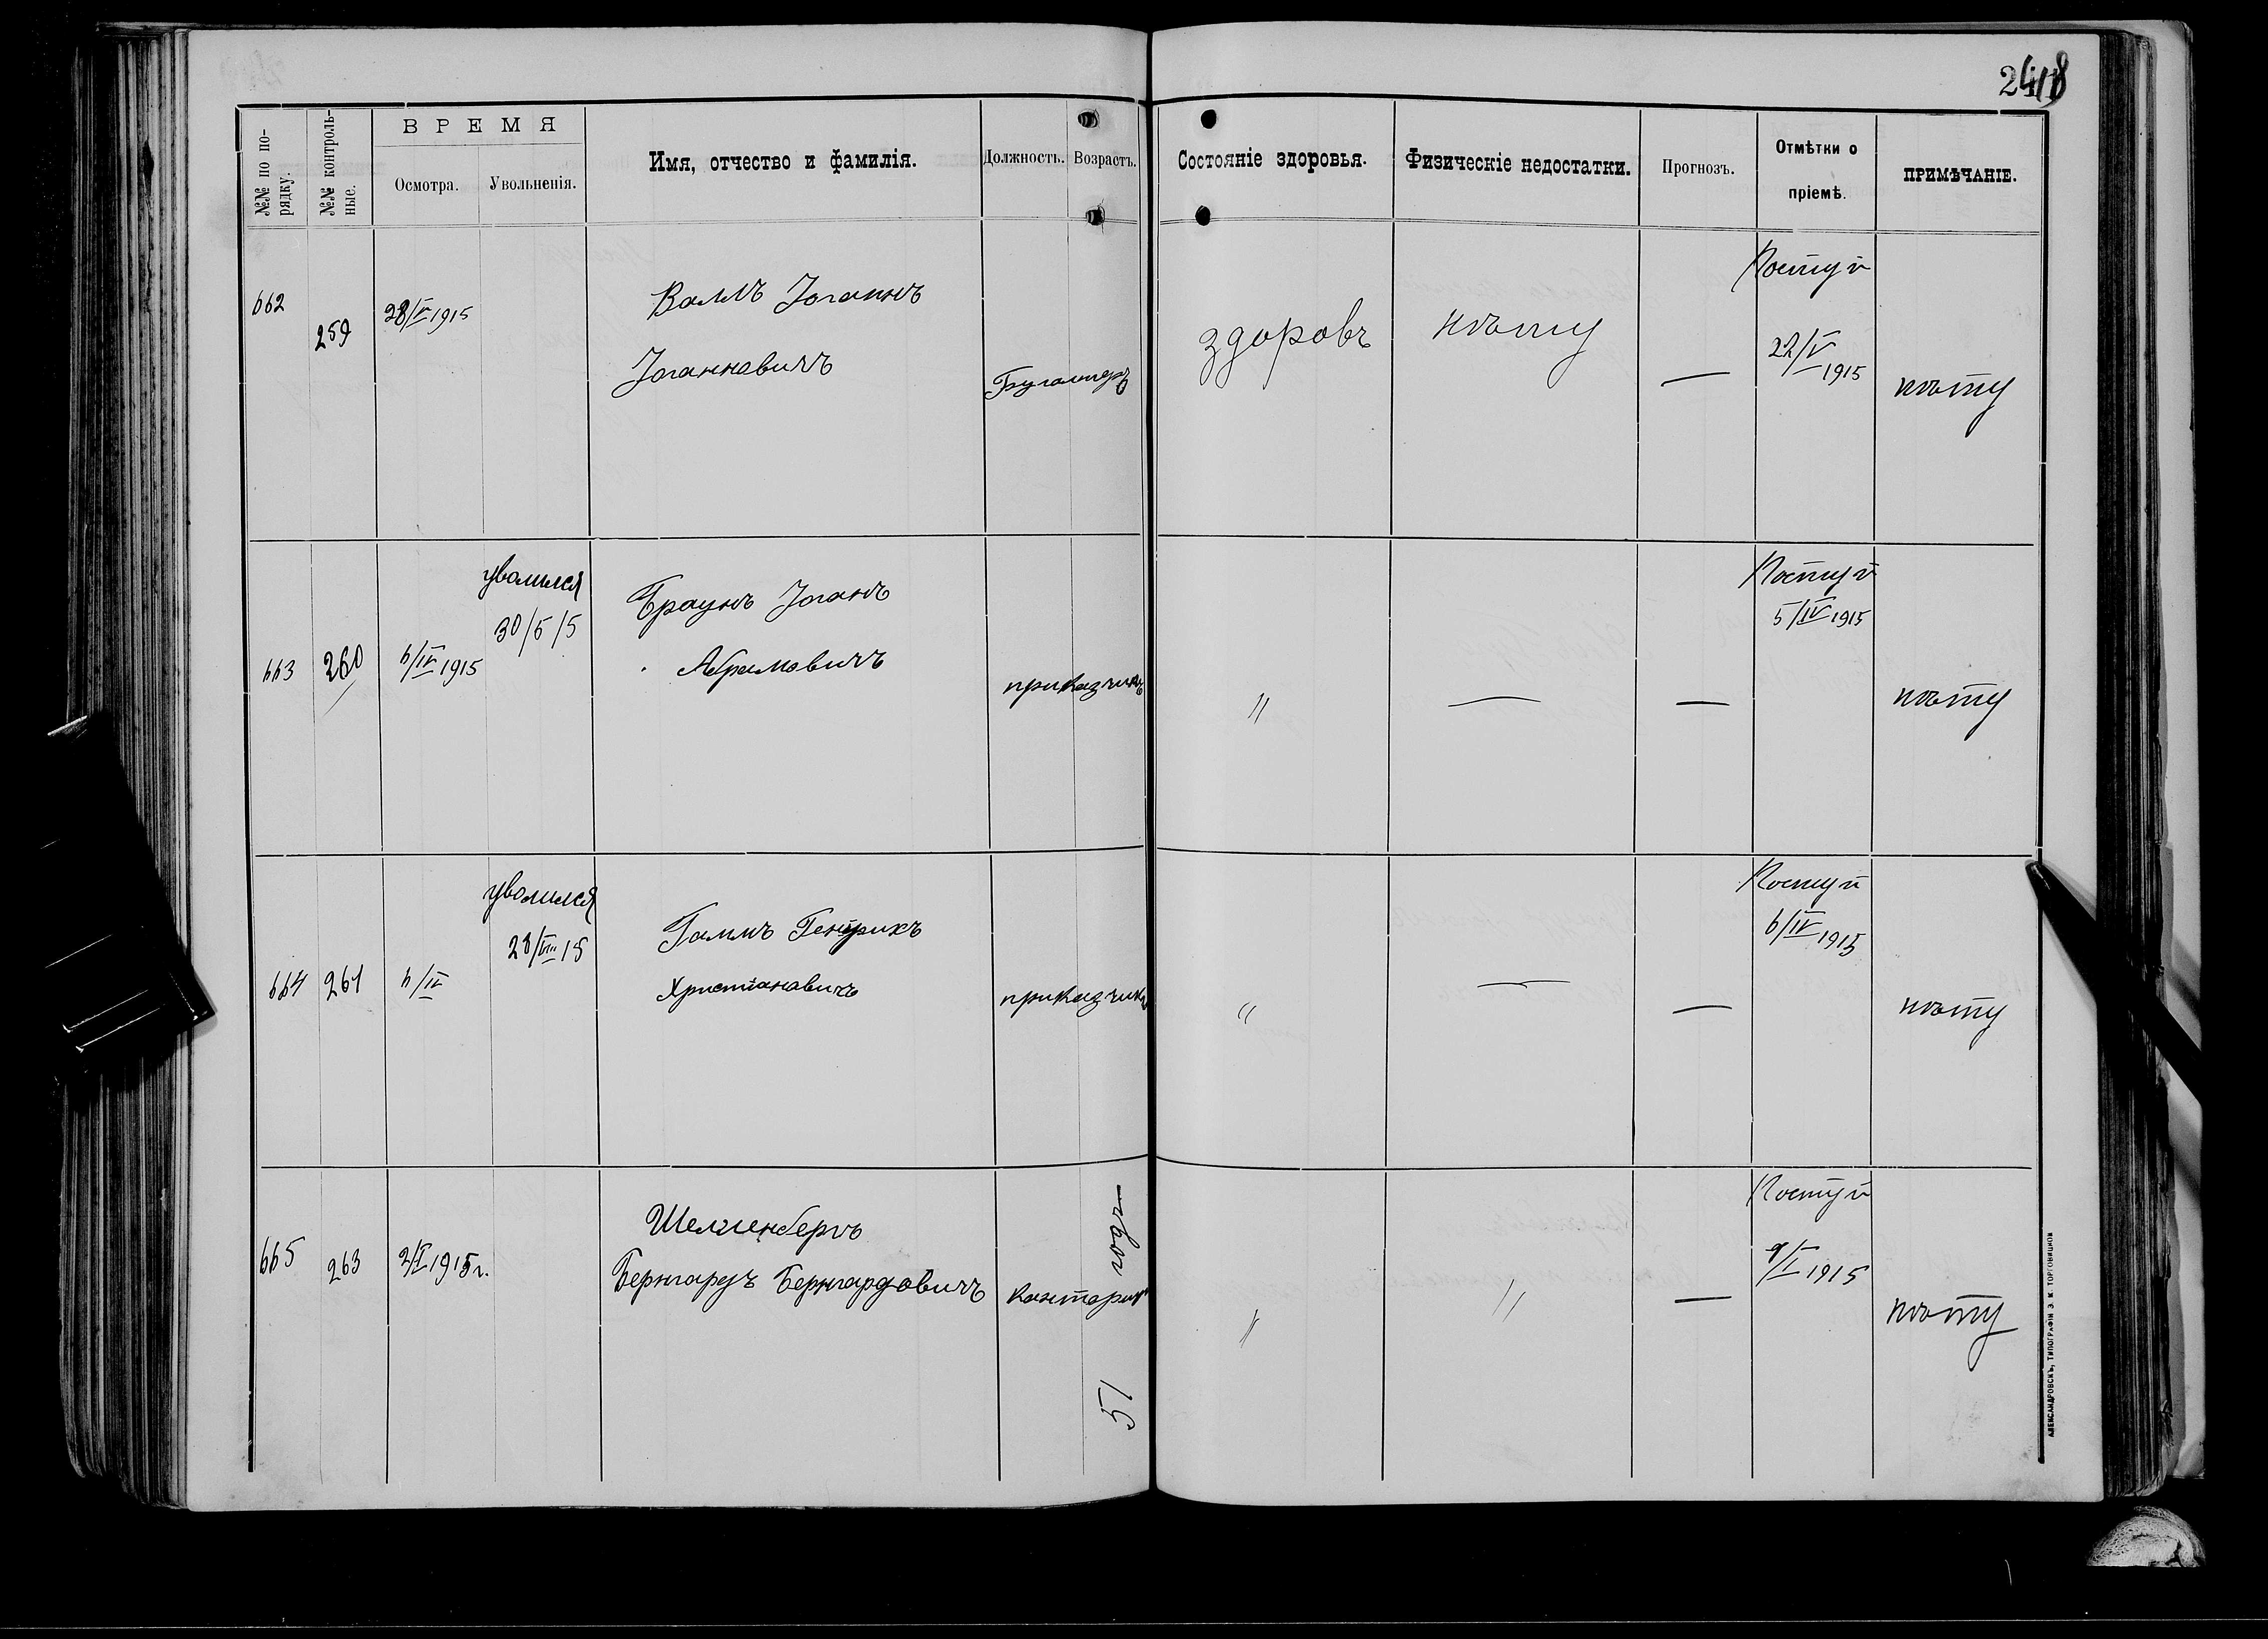 248
В Р Е М Я
№№ по по-
рядку.
№№ контроль-
ные.
Осмотра.
Увольненія.
Имя, отчество и фамилія.
Должность.
Возрастъ.
Состояніе здоровья.
Физическіе недостатки.
Прогнозъ.
Отмѣтки о
пріемѣ.
ПРИМѢЧАНІЕ.
662
259
28/V 1915
Валлъ Іоганнъ
Іоганновичъ
Бугалтеръ
здоровъ
нѣту
—
Поступ
22/V
1915
нѣту
663
260
6/IV 1915
уволился
30/5/5
Браунъ Іоганъ
Абрамовичъ
приказчикъ
"
—
—
Поступ
5/IV 1915
нѣту
664
261
6/IV
уволился
28/VIII 15
Гаммъ Генрихъ
Христіановичъ
приказчикъ
"
—
—
Поступ
6/IV 1915
нѣту
665
263
2/I 1915 г.
Шелленбергъ
Бернгардъ Бернгардовичъ
Конторщ
51 годъ
"
"
—
Поступ
1915
нѣту
АЛЕКСАНДРОВСКЪ, ТИПОГРАФІЯ Э. К. ТОРГОВИЦКОВ